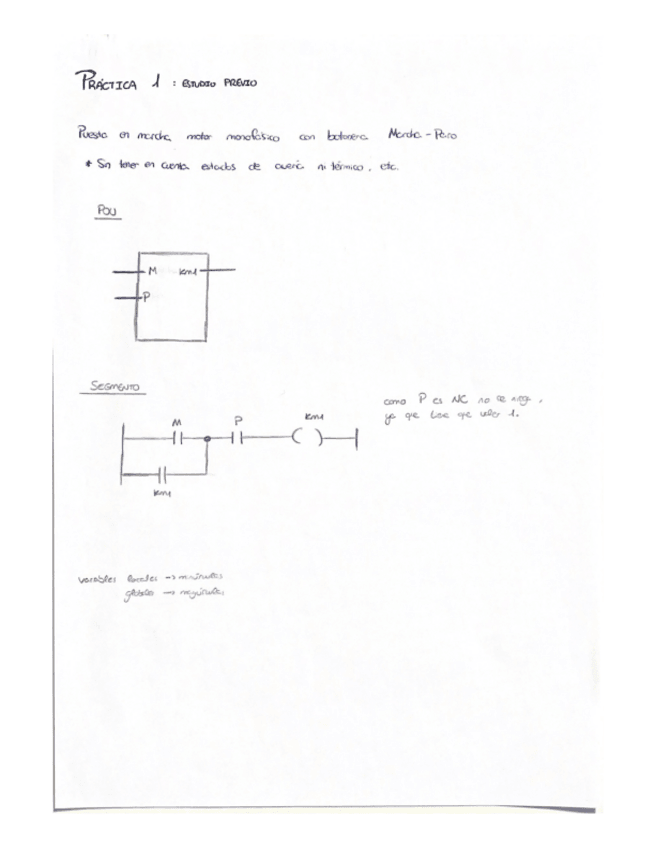 PRÁCTICA 1 : ESTUDIO PREVIO
Puesta en marcha motor monofásico con botonera Marcha-Paro
* Sin tener en cuenta estados de avería ni térmico, etc.
POU
M KM1
P
SEGMENTO
como P es NC no se niega,
ya que tiene que valer 1.
M P KM1
KM1
variables locales → minúsculas
globales → mayúsculas